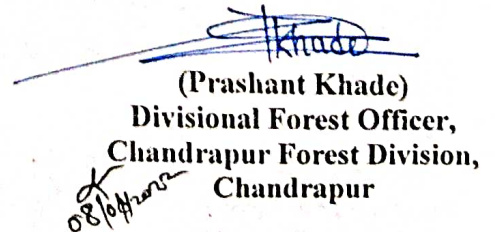 Khade
(Prashant Khade)
Divisional Forest Officer,
Chandrapur Forest Division,
Chandrapur
08/04/2022